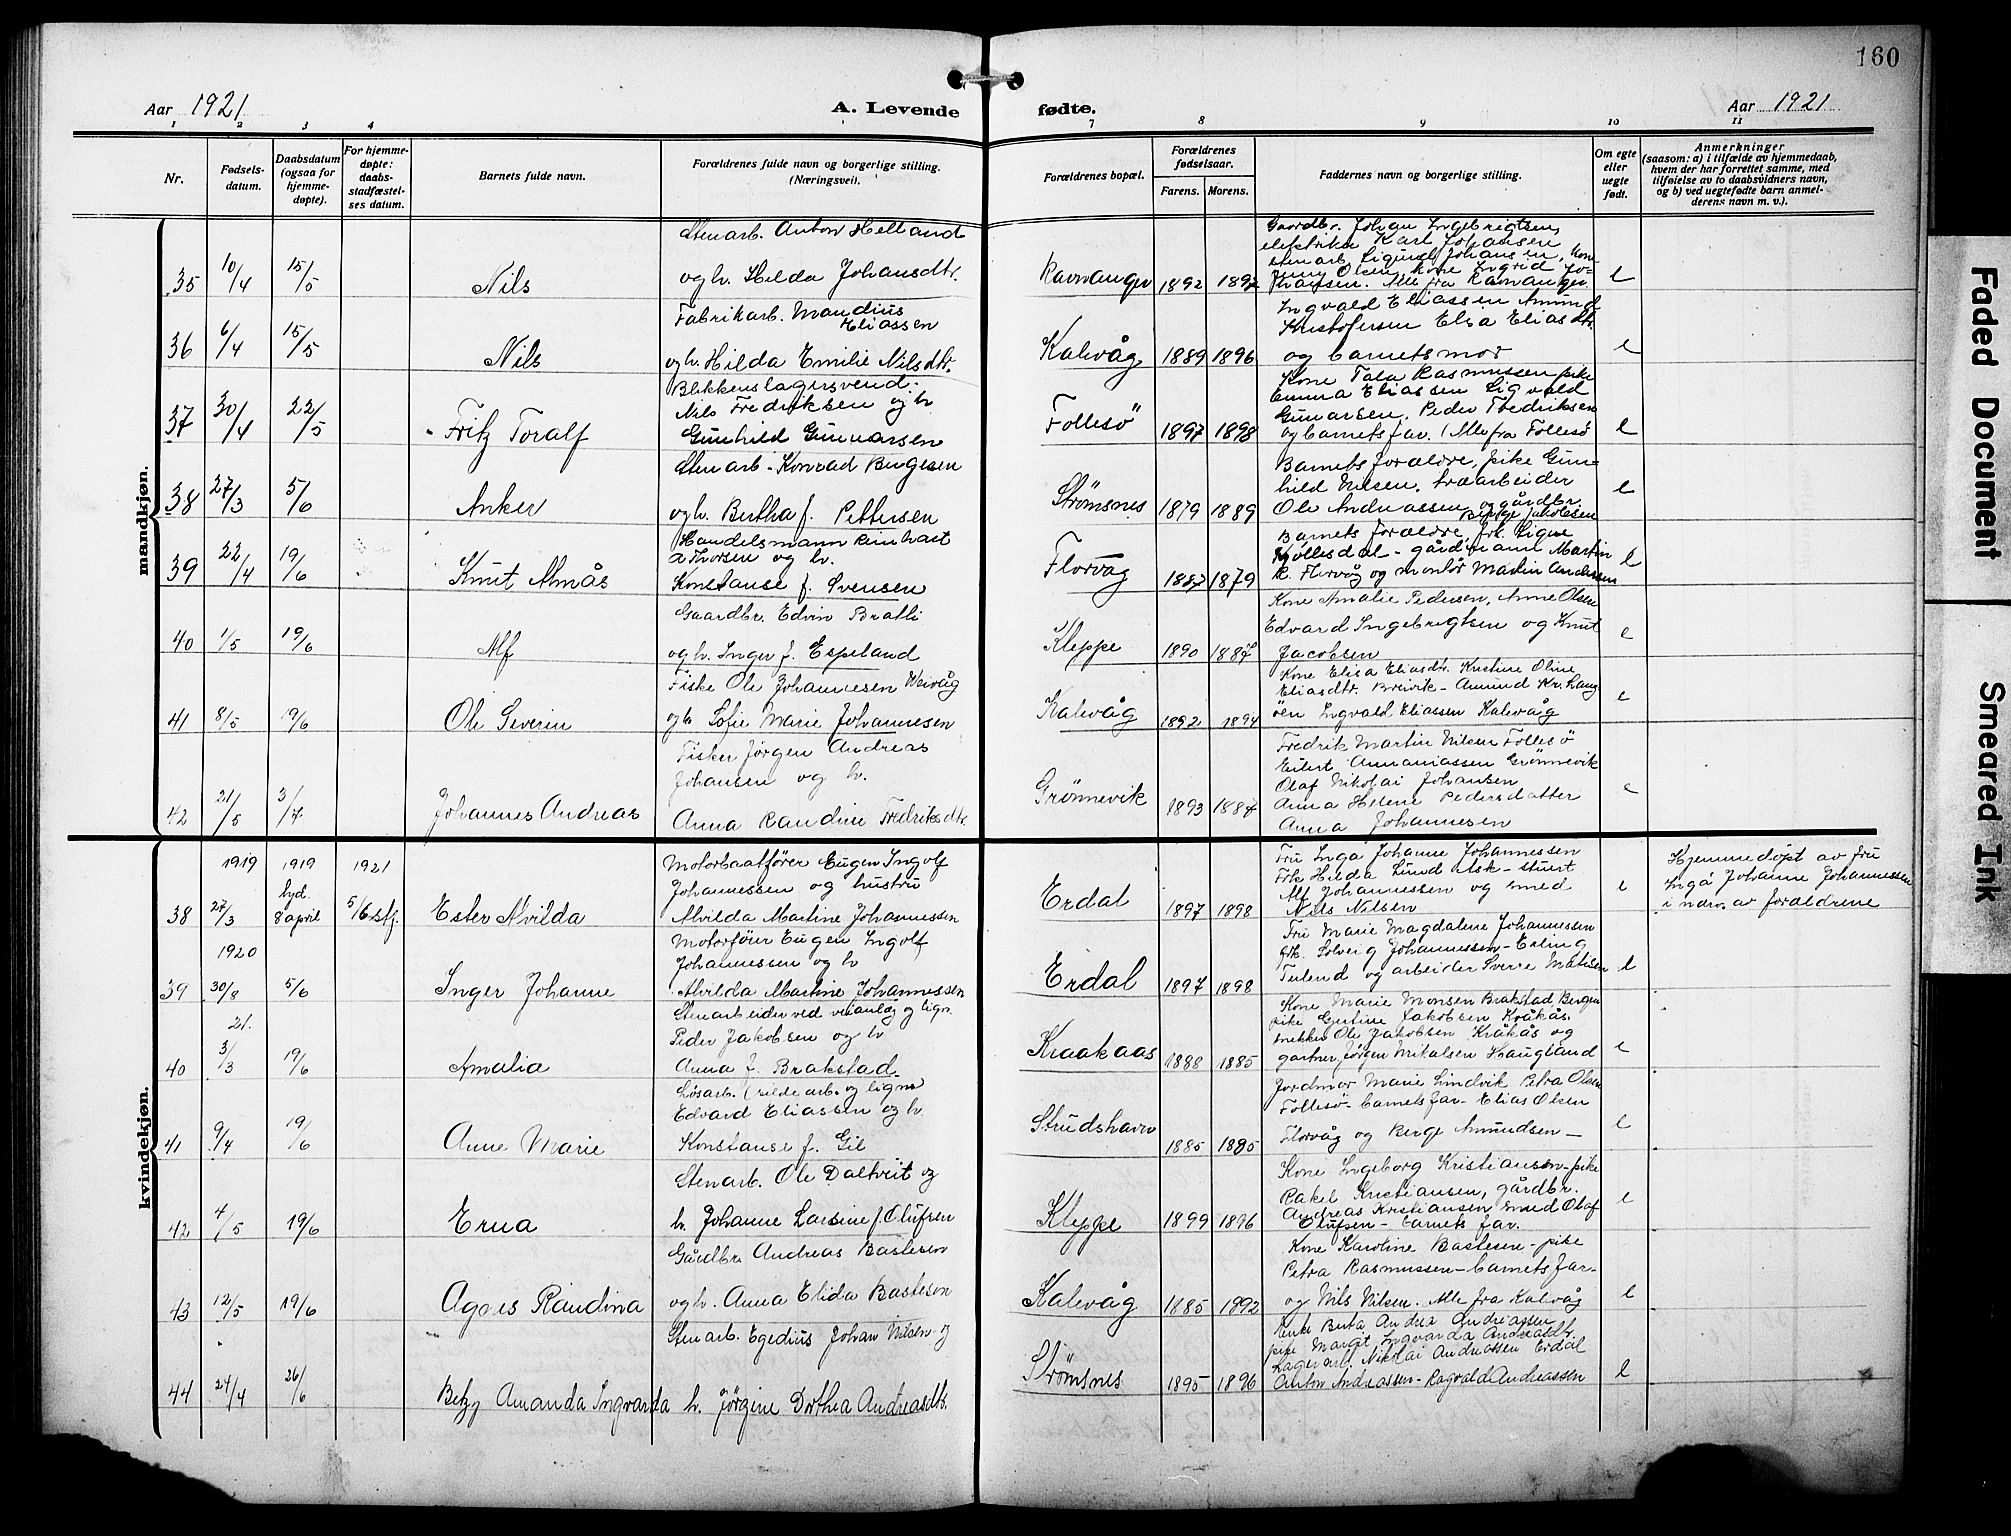 160
Aar 1921
A. Levende fødte.
Aar 1921
1 2 3 4 7 8 9 10 11
Nr.
Fødsels-
datum.
Daabsdatum
(ogsaa for
hjemme-
døpte).
For hjemme-
døpte:
daabs-
stadfæstel-
ses datum.
Barnets fulde navn.
Forældrenes fulde navn og borgerlige stilling.
(Næringsvei).
Forældrenes bopæl.
Forældrenes
fødselsaar.
Farens. Morens.
Faddernes navn og borgerlige stilling.
Om egte
eller
uegte
født.
Anmerkninger
(saasom: a) i tilfælde av hjemmedaab,
hvem der har forrettet samme, med
tilføielse av to daabsvidners navn,
og b) ved uegtefødte barn anmel-
derens navn m. v.).
mandkjøn.
35 10/4 15/5 Nils
Stenarb. Anton Helland
og h. Hilda Johansdtr.
Ravnanger 1892 1892
Gaardbr. Johan Ingebrigtsen,
elektriker Karl Johansen
stenarb. Sigurd Johansen, Kone
Jenny Olsen, Kone Ingrid Jo-
hansen. Alle fra Ravnanger.
e
36 6/4 15/5 Nils
Fabrikarb. Mandius
Eliassen
og h. Hilda Emilie Nilsdtr.
Kalvåg 1889 1896
Ingvald Eliassen Amund
Kristofersen Elsa Eliasdtr.
og barnets mor
e
37 30/4 22/5 Fritz Toralf
Blikkenslagersvend.
Nils Fredriksen og h
Gunhild Gunnarsen
Follesö 1897 1898
Kone Tala Rasmussen pike
Emma Eliassen Sigvald
Gunarsen. Peder Fredriksen
og barnets far. (Alle fra Follesö
e
38 27/3 5/6 Anker
Stenarb - Konrad Birgesen
og h. Bertha f. Pettersen
Strømsnes 1879 1889
Barnets forældre, pike Gun-
hild Nilsen. træarbeider
Ole Andreassen og gårdbr.
Børge Jakobsen
e
39 22/4 19/6 Knut Almås
Handelsmann Reinhart
A Thorsen og h.
Konstanse f. Svensen
Florvåg 1887 1879
Barnets forældre, frk. Signe
Kjøllesdal - gårdmann Martin
K. Florvåg og montør Martin Andersen
e
40 1/5 19/6 Alf
Gaardbr. Edvin Bratli
og h. Inger f. Espeland
Kleppe 1890 1887
Kone Amalie Pedersen, Anne Olsen
Edvard Ingebrigtsen og Knut
Jacobsen
e
41 8/5 19/6 Ole Severin
Fisker Ole Johannesen
og h Sofie Marie Johannesen
Kalvåg 1892 1894
Kone Elisa Eliasdtr. Kristine Oline
Eliasdtr. Breivik - Amund Kr. Lang
öen Ingvald Eliassen Kalvåg
e
42 21/5 3/7 Johannes Andreas
Fisker Jørgen Andreas
Johansen og h.
Anna Randine Fredriksdtr.
Grønnevik 1893 1887
Fredrik Martin Nilsen Follesö
Eilert Annaniassen Grønnevik
Olaf Nikolai Johansen
Anna Helene Pedersdatter
Anna Johannesen
e
kvindekjøn.
38 1919 27/3 1919 8 april 1921 5/6 stf. Ester Alvilda
Motorbaatfører Eugen Ingolf
Johannessen og hustru
Alvilda Martine Johannessen
Erdal 1897 1898
Fru Inga Johanne Johannessen
Frk Hilda Lund Ask - stuert
Alf Johannessen og smed
Nils Nilsen
e
Hjemmedøpt av fru
Inga Johanne Johannessen
i nærv. av forældrene
39 1920 30/8 5/6 Inger Johanne
Motorfører Eugen Ingolf
Johannessen og h
Alvilda Martine Johannessen
Erdal 1897 1898
Fru Marie Magdalene Johannessen
frk. Solveig Johannessen - Erling
og arbeider Sverre
e
40 21. 3/3 19/6 Amalia
Stenarbeider ved veianlæg og lign.
Peder Jakobsen og h
Anna f. Brakstad.
Kraakaas 1888 1885
Kone Marie Monsen Brakstad Bergen
pike Gjertine Jakobsen Kråkås.
snekker Ole Jakobsen Kråkås og
gartner Jørgen Mikalsen Haugland
e
41 9/4 19/6 Anne Marie
Løsarb. og lign
Edvard Eliassen og h.
Konstanse f. Gil
Strudshavn 1885 1895
Jordmor Marie Lindvik Petra Olsen
Follesö - barnets far - Elias Olsen
Florvåg og Berge Amundsen -
e
42 4/5 19/6 Erna
Stenarb. Ole Daltveit og
h. Johanne Larsine f. Olufsen
Kleppe 1899 1896
Kone Ingeborg Kristiansen - pike
Rakel Kristiansen, gårdbr.
Andreas Kristiansen smed Olaf
Olufsen - barnets far.
e
43 12/5 19/6 Agnes Randina
Gårdbr. Andreas Bastesen
og h. Anna Elida Bastesen
Kalvåg 1885 1892
Kone Karoline Bastesen - pike
Petra Rasmussen - barnets far -
og Nils Nilsen. Alle fra Kalvåg
e
44 24/4 26/6 Betzy Amanda Ingvarda
Stenarb. Egedius Johan Nilsen og
h. Jørgine Dorthea Andreasdtr.
Strømsnes 1895 1896
Enke Berta Andrea Andreassen
pike Margit Ingvarda Andreasdtr.
Lagerarb. Nikolai Andreassen Erdal
Anton Andreassen - Ragvald Andreassen
e
Faded Document
Smeared Ink